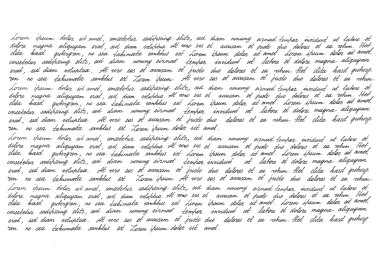 Lorem ipsum dolor sit amet, consetetur sadipscing elitr, sed diam nonumy eirmod tempor invidunt ut labore et
dolore magna aliquyam erat, sed diam voluptua. At vero eos et accusam et justo duo dolores et ea rebum. Stet
clita kasd gubergren, no sea takimata sanctus est Lorem ipsum dolor sit amet. Lorem ipsum dolor sit amet,
consetetur sadipscing elitr, sed diam nonumy eirmod tempor invidunt ut labore et dolore magna aliquyam
erat, sed diam voluptua. At vero eos et accusam et justo duo dolores et ea rebum. Stet clita kasd
ren no sea takimata sanctus est Lorem ipsum dolor sit amet.
Lorem ipsum dolor sit amet, consetetur sadipscing elitr, sed diam nonumy eirmod tempor invidunt ut labore et
dolore magna aliquyam erat, sed diam voluptua. At vero eos et accusam et justo duo dolores et ea rebum. Stet
clita kasd gubergren, no sea takimata sanctus est Lorem ipsum dolor sit amet. Lorem ipsum dolor sit amet,
consetetur sadipscing elitr, sed diam nonumy eirmod tempor invidunt ut labore et dolore magna aliquyam
erat, sed diam voluptua. At vero eos et accusam et justo duo dolores et ea rebum. Stet clita kasd
ren no sea takimata sanctus est Lorem ipsum dolor sit amet.
Lorem ipsum dolor sit amet, consetetur sadipscing elitr, sed diam nonumy eirmod tempor invidunt ut labore et
dolore magna aliquyam erat, sed diam voluptua. At vero eos et accusam et justo duo dolores et ea rebum. Stet
clita kasd gubergren, no sea takimata sanctus est Lorem ipsum dolor sit amet. Lorem ipsum dolor sit amet,
consetetur sadipscing elitr, sed diam nonumy eirmod tempor invidunt ut labore et dolore magna aliquyam
erat, sed diam voluptua. At vero eos et accusam et justo duo dolores et ea rebum. Stet clita kasd
ren no sea takimata sanctus est Lorem ipsum dolor sit amet.
Lorem ipsum dolor sit amet, consetetur sadipscing elitr, sed diam nonumy eirmod tempor invidunt ut labore et
dolore magna aliquyam erat, sed diam voluptua. At vero eos et accusam et justo duo dolores et ea rebum. Stet
clita kasd gubergren, no sea takimata sanctus est Lorem ipsum dolor sit amet. Lorem ipsum dolor sit amet,
consetetur sadipscing elitr, sed diam nonumy eirmod tempor invidunt ut labore et dolore magna aliquyam
erat, sed diam voluptua. At vero eos et accusam et justo duo dolores et ea rebum. Stet clita kasd
ren no sea takimata sanctus est Lorem ipsum dolor sit amet.